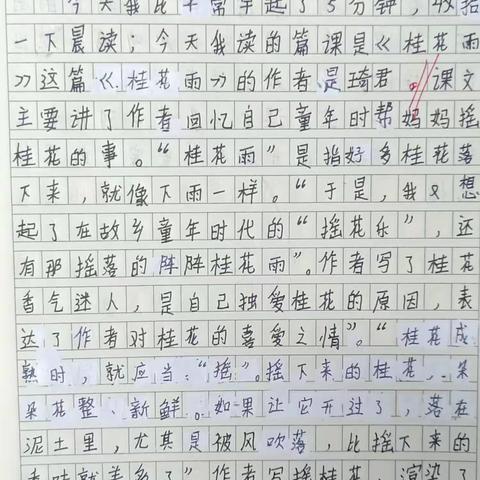 今天我比平常早起了5分钟，收拾
一下晨读；今天我读的篇课是《桂花雨
》这篇《桂花雨》的作者是琦君。课文
主要讲了作者回忆自己童年时帮妈妈摇
桂花的事。“桂花雨”是指好多桂花落
下来，就像下雨一样。“于是，我又想
起了在故乡童年时代的“摇花乐”，还
有那摇落的阵阵桂花雨”。作者写了桂花
香气迷人，是自己独爱桂花的原因，表
达了作者对桂花的喜爱之情”。“桂花成
熟时，就应当：“摇”。摇下来的桂花，朵
朵花整、新鲜。如果让它开过了，落在
泥土里，尤其是被风吹落，比摇下来的
香味就差多了”作者写摇桂花，渲染了